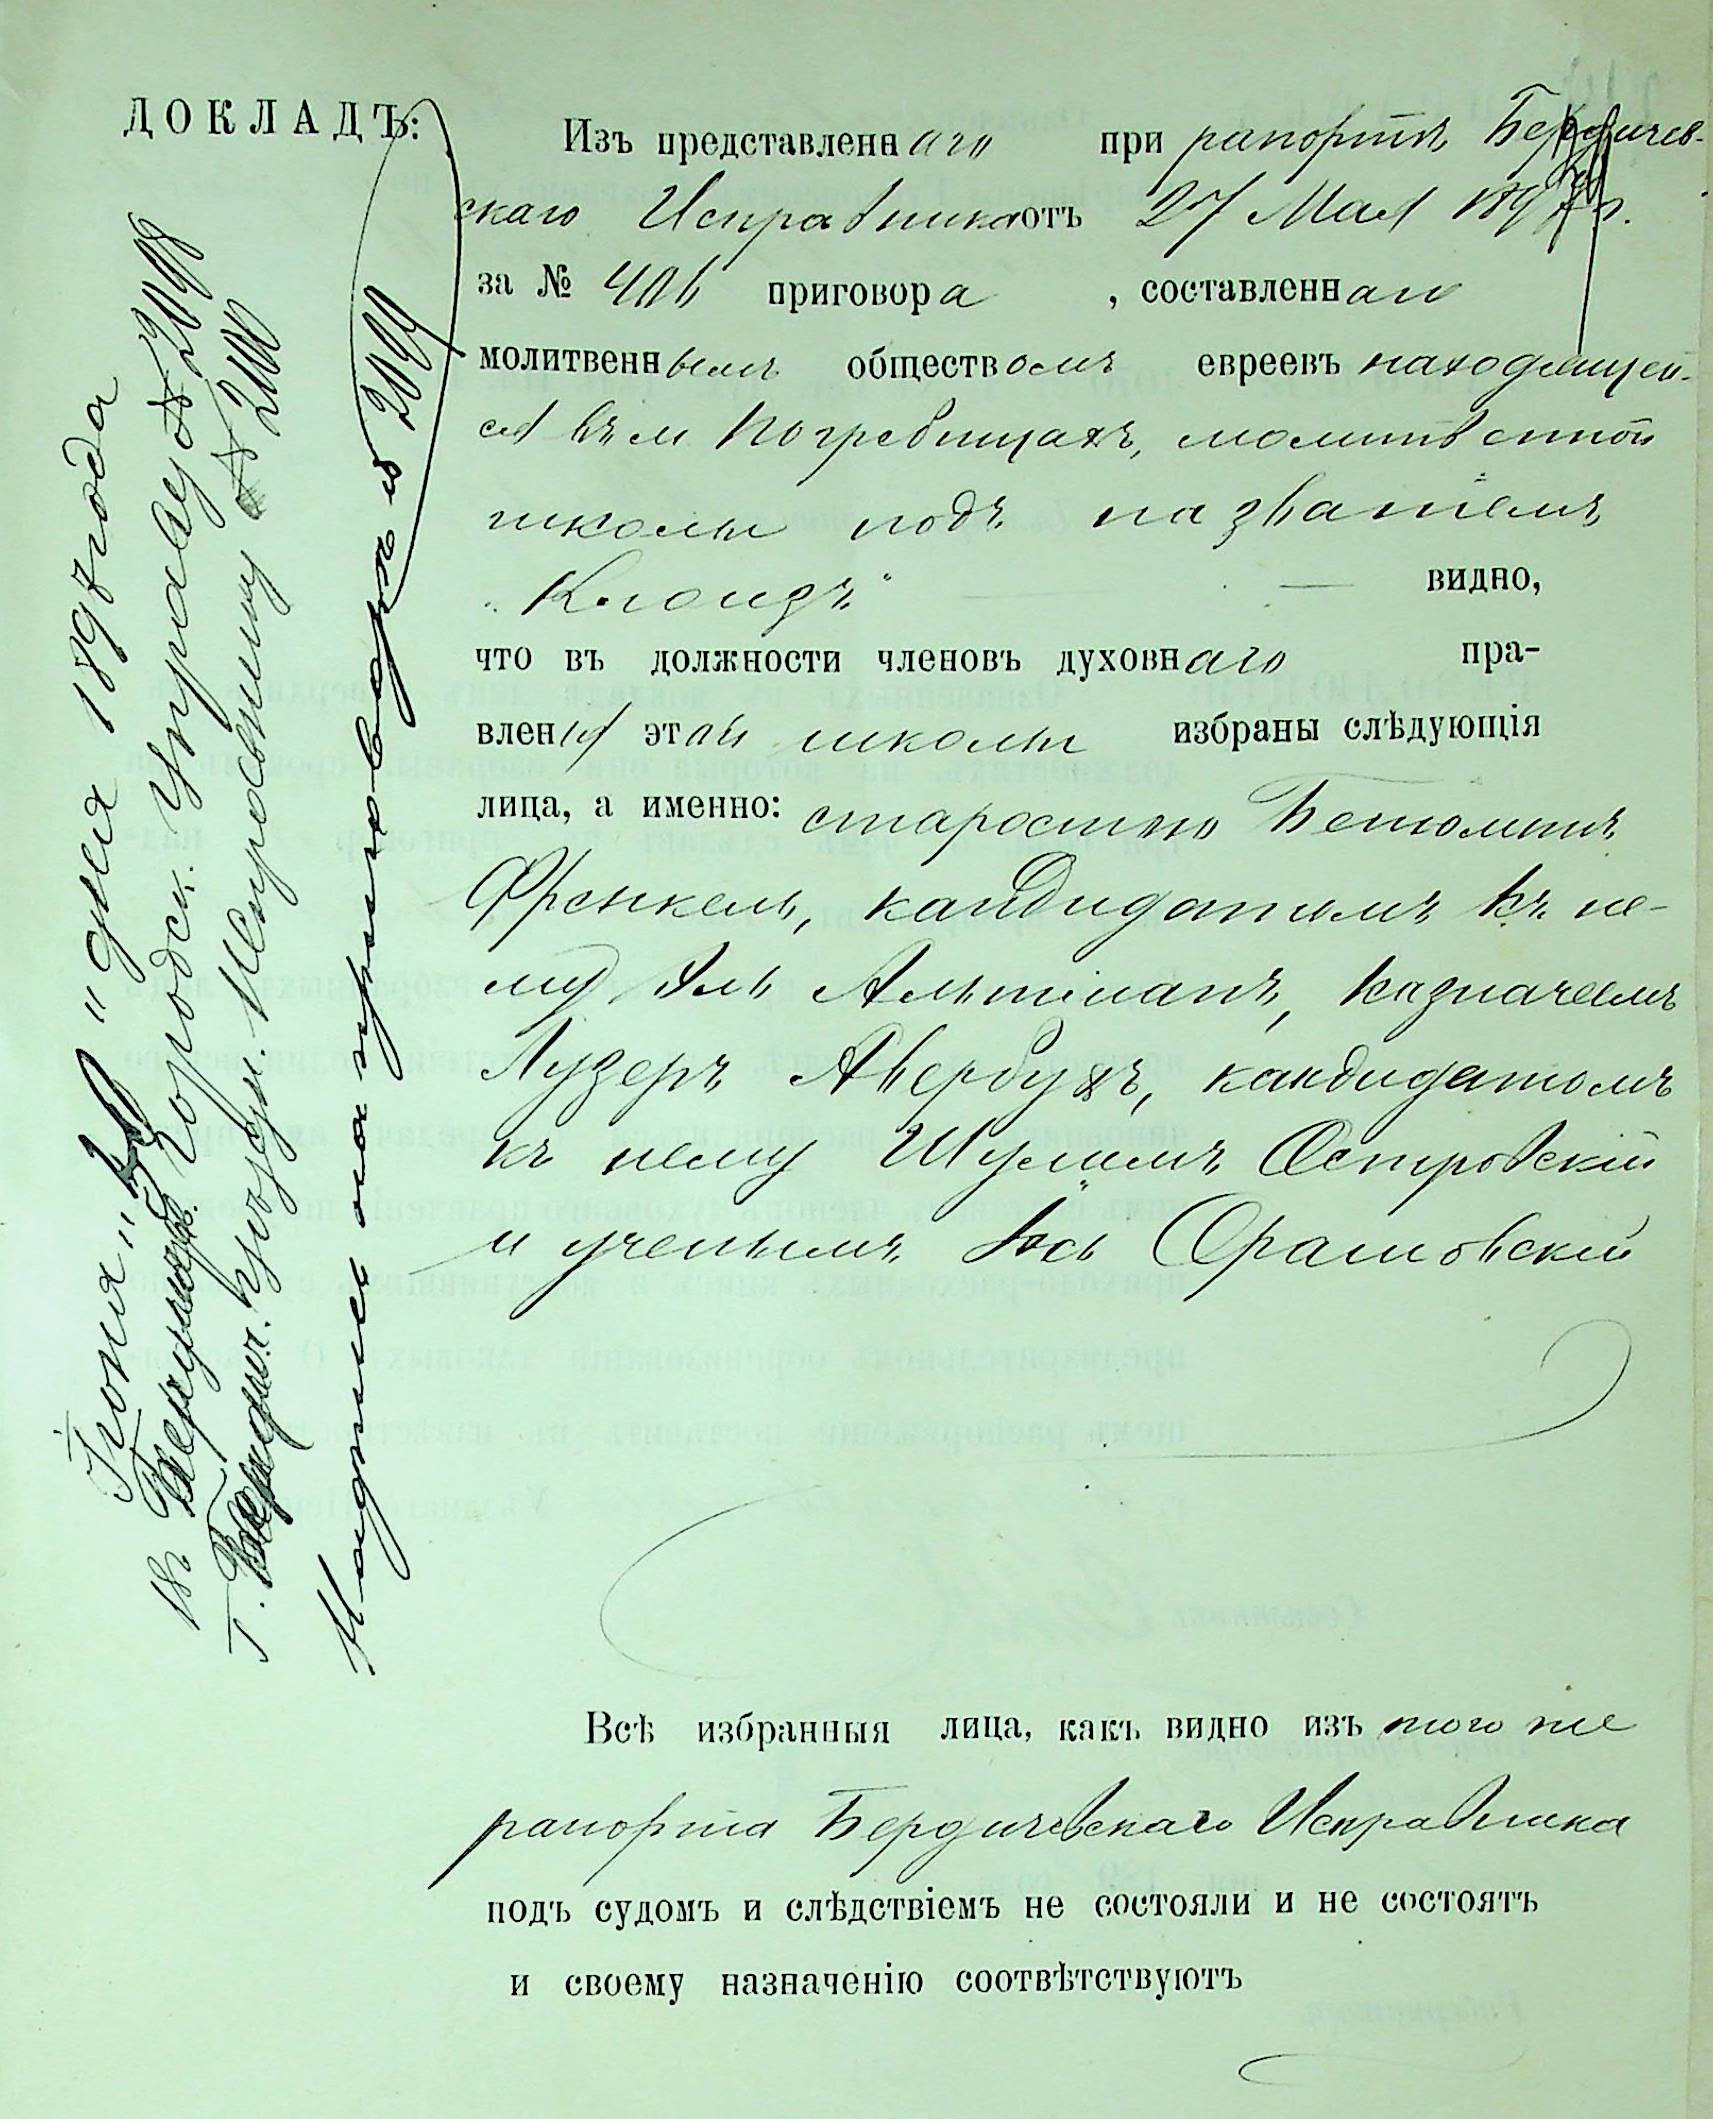 ДОКЛАДЪ:
Изъ представленнаго при рапортѣ Бердичев-
скаго Исправника отъ 27 Мая 1897 г.
за № 406 приговора, составленнаго
молитвеннымъ обществомъ евреевъ находящей-
ся въ м Погребищахъ, молитвенной
школы подъ названіемъ
„Клоизъ“ — видно,
что въ должности членовъ духовнаго пра-
вленія этой школы избраны слѣдующія
лица, а именно: старостою Беніоминъ
Френкель, кандидатомъ къ не-
му Эль Альтманъ, казначеемъ
Лузеръ Авербухъ, кандидатомъ
къ нему Шулимъ Островскій
и ученымъ Іось Оратовскій
Всѣ избранныя лица, какъ видно изъ того же
рапорта Бердичевскаго Исправника
подъ судомъ и слѣдствіемъ не состояли и не состоятъ
и своему назначенію соотвѣтствуютъ
Іюня „30“ дня 1897 года
Городск. Управу № 2098
Г. Бердич. Уѣздн. Исправнику № 2100
Надпись на приговорѣ № 2099